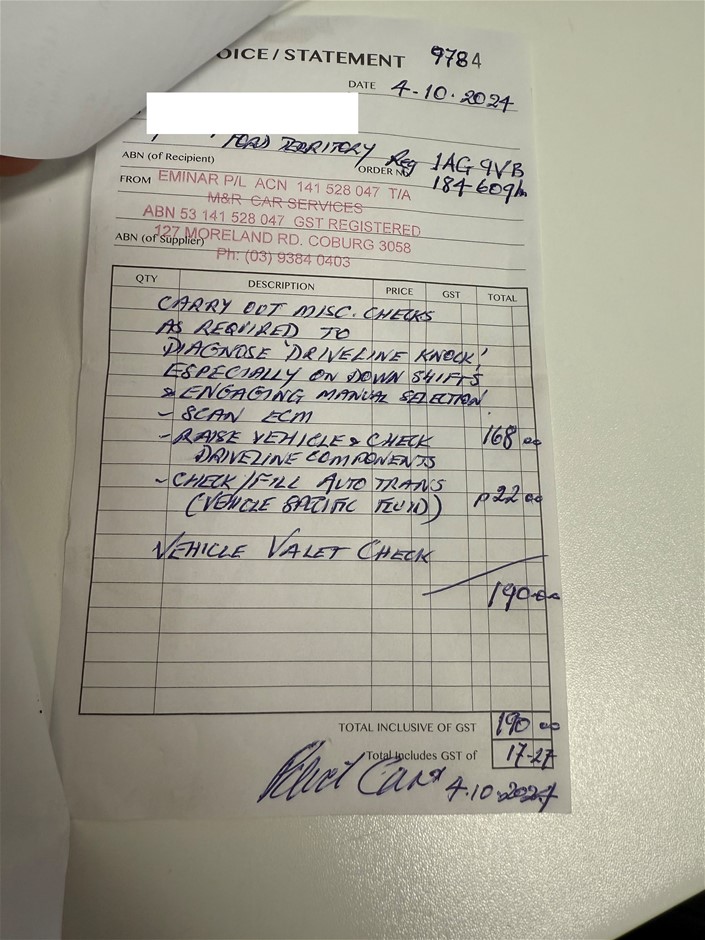 OICE / STATEMENT 9784
DATE 4-10-2024
FORD TERRITORY Reg 1AG 9VB
ABN (of Recipient)
ORDER N
184-609
FROM EMINAR P/L ACN 141 528 047 T/A
M&R CAR SERVICES
ABN 53 141 528 047 GST REGISTERED
127 MORELAND RD. COBURG 3058
ABN (of Supplier)
Ph: (03) 9384 0403
QTY DESCRIPTION PRICE GST TOTAL
CARRY OUT MISC. CHECKS
AS REQUIRED TO
DIAGNOSE 'DRIVELINE KNOCK'
ESPECIALLY ON DOWN SHIFTS
& ENGAGING MANUAL SELECTION.
- SCAN ECM
- RAISE VEHICLE & CHECK 168 00
DRIVELINE COMPONENTS
- CHECK/FILL AUTO TRANS
(VEHICLE SPECIFIC FLUID) P 22 00
VEHICLE VALET CHECK
190-00
TOTAL INCLUSIVE OF GST 190 00
Total Includes GST of 17-27
4.10.2024